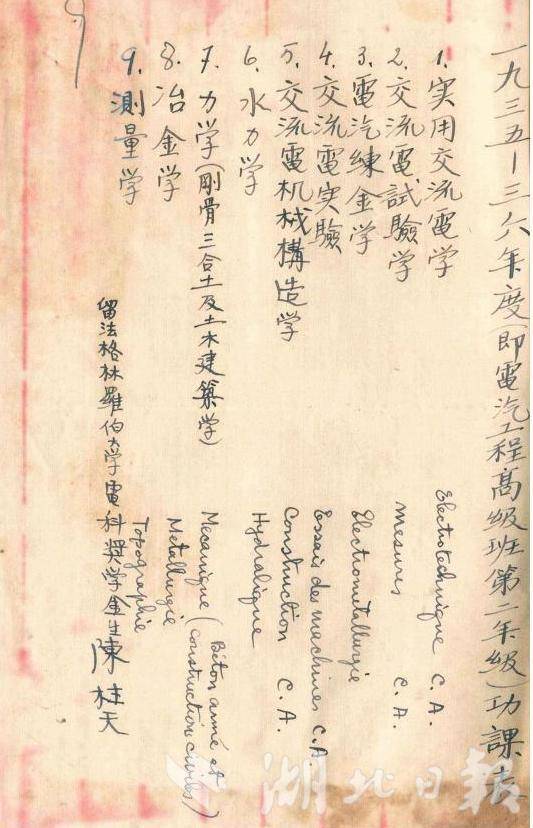 一九三五－三六年度（即電汽工程高級班第二年級）功課表
1. 実用交流電学 Electrotechnique C.A.
2. 交流電試驗学 Mesures C.A.
3. 電汽練金学 Electrometallurgie
4. 交流電実驗 Essais des machines C.A.
5. 交流電机械構造学 Construction C.A.
6. 水力学 Hydralique
7. 力学（剛骨三合土及土木建築学） Mecanique ( Béton armé et construction civiles )
8. 冶金学 Metallurgie
9. 測量学 Topographie
留法格林羅伯大学電科奨学金生 陳柱天
湖北日報